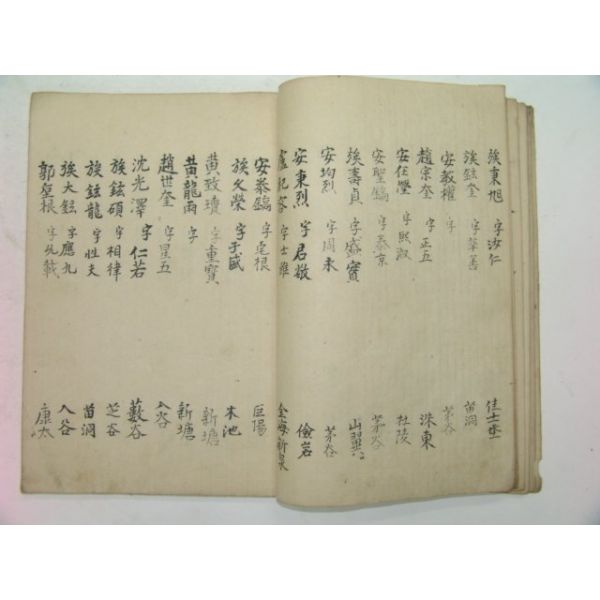 族東旭 字汝仁 佳士
族鉉奎 字 善 苗洞
安敎權 字 茅谷
趙宗奎 字正五 洙東
安任 字熙淑 杜陵
安聖鎬 字泰京 茅谷
族壽貞 字盛寶 山翼
安均烈 字周永 茅谷
安秉烈 字君敬 儉岩
盧杞容 字士雖 金海新泉
安泰鎬 字 根 巨陽
族文榮 字子盛 木池
黃致瓊 字重寶 新塘
黃龍雨 字 新塘
趙世奎 字星五 入谷
沈光澤 字仁若 藪谷
族鉉碩 字相律 芝谷
族鉉龍 字性夫 苗洞
族大鉉 字應九 入谷
郭 根 字 載 康太